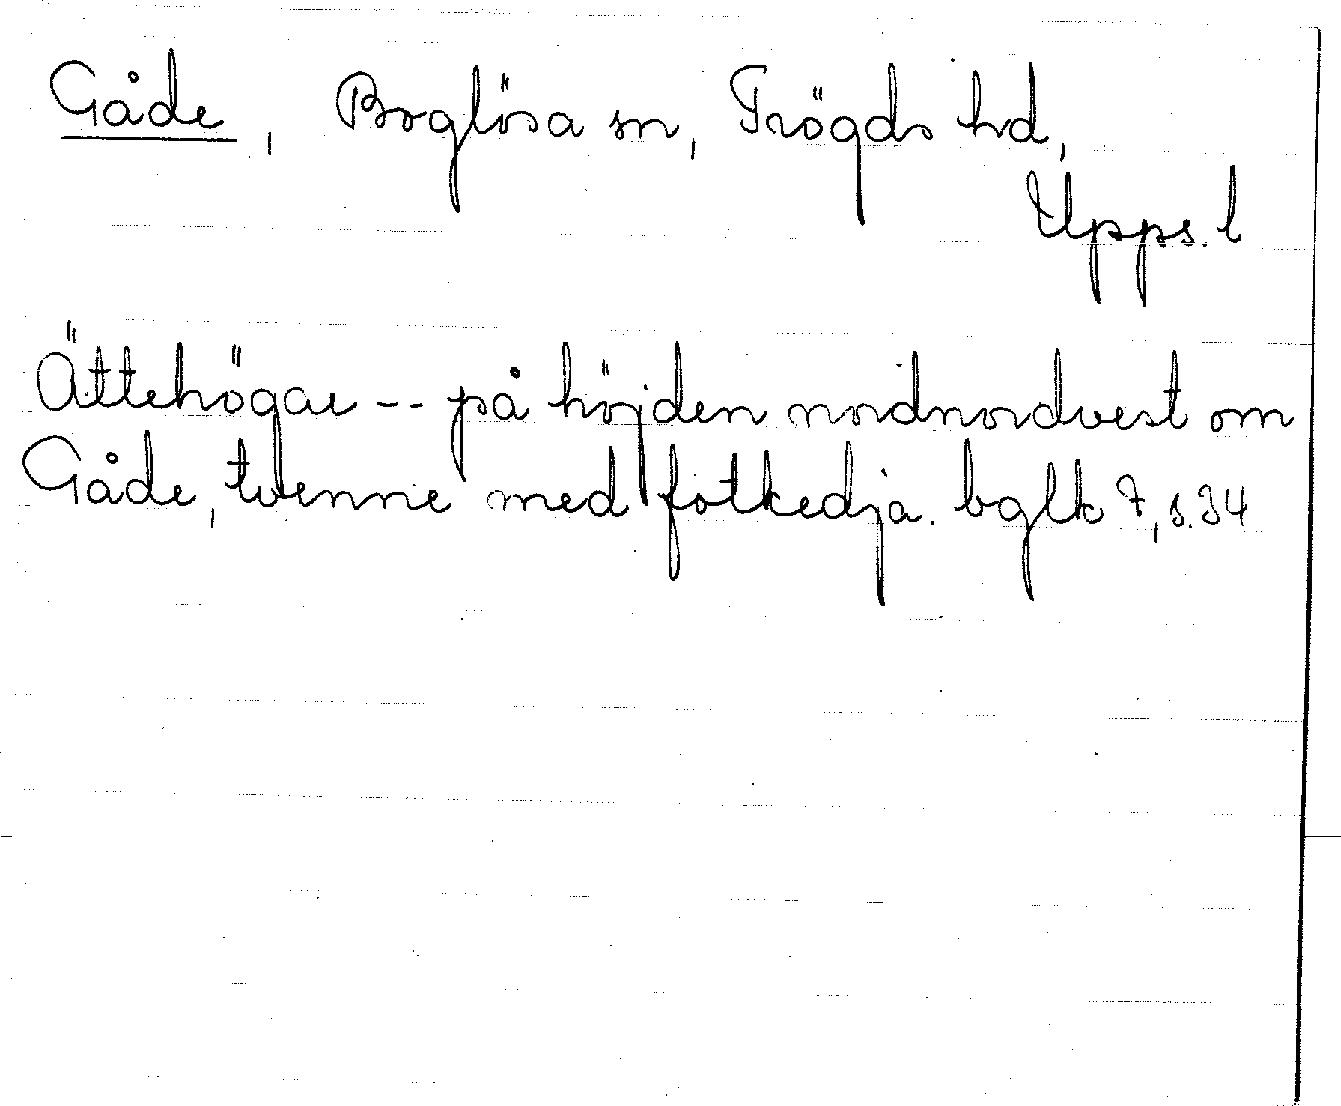 Gåde, Boglösa sn, Trögds hd,
Upps. l
Ättehögar -- på höjden nordnordvest om
Gåde, tvenne med fotkedja. bglk 7, s. 34